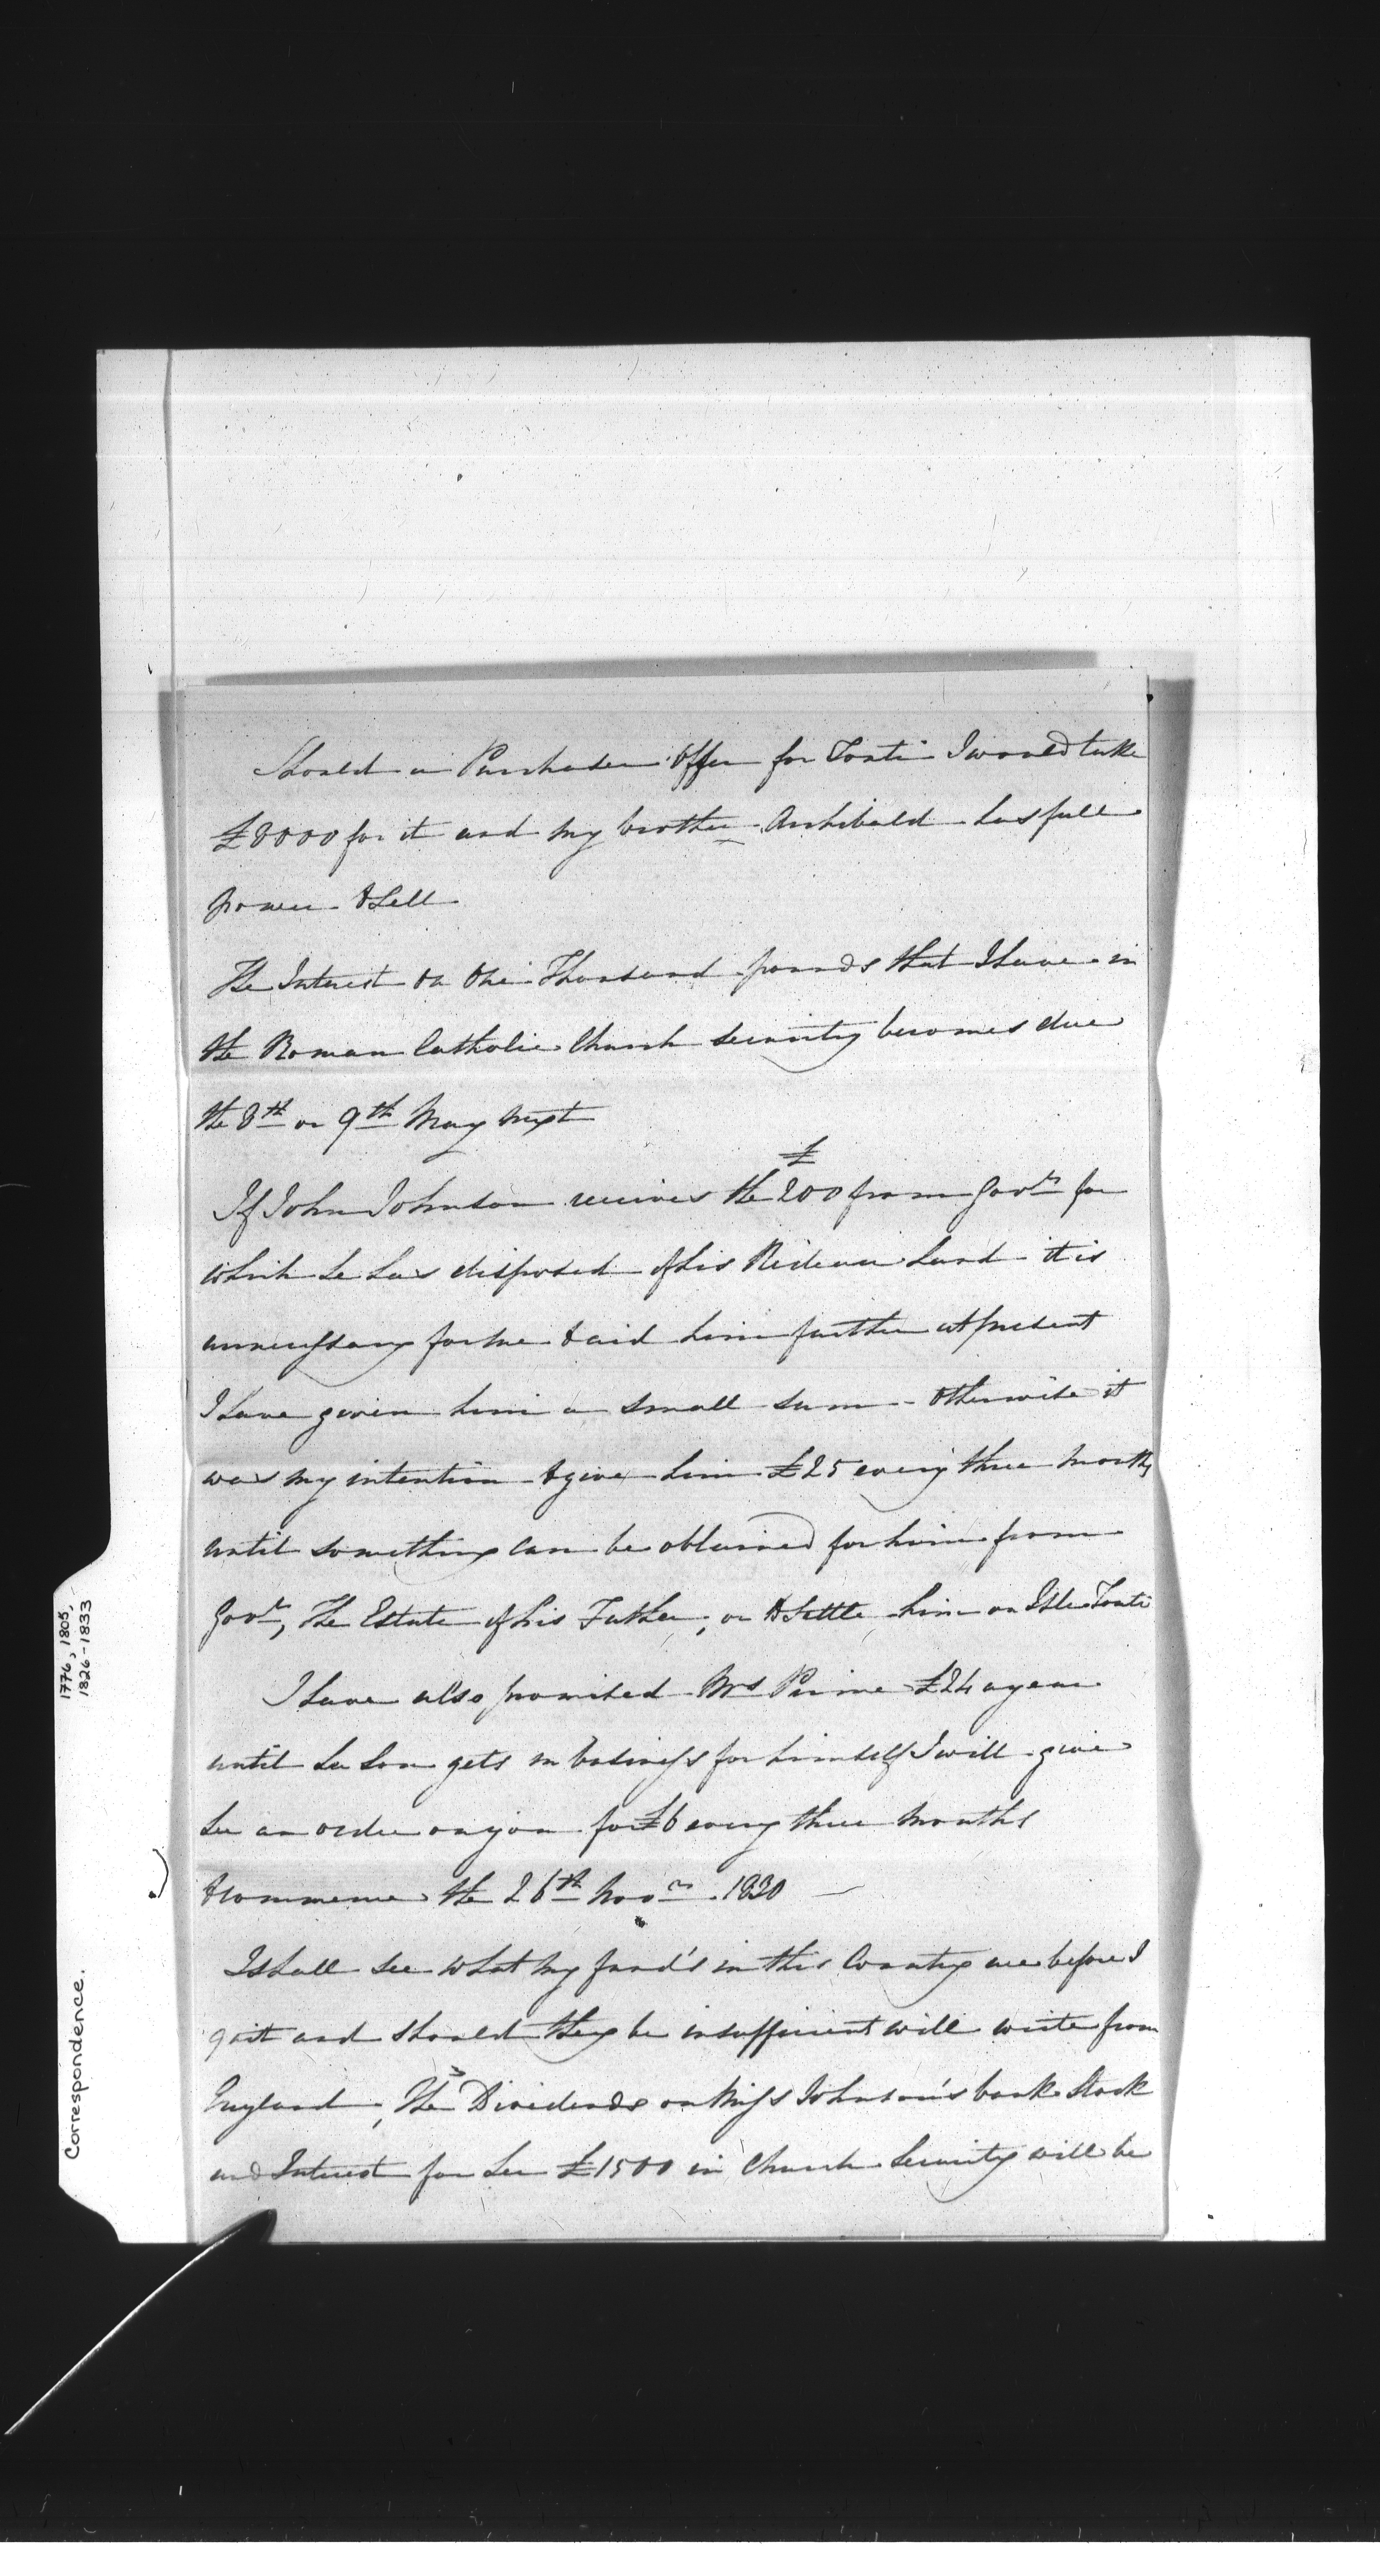 Should a Purchaser Offer for Tonti I would take
£8000 for it and my brother Archibald has full
power to Sell
The Interest on One Thousand pounds that I have in
the Roman Catholic Church security becomes due
the 8th or 9th May next
If John Johnson receives the £200 from Govt for
which he has disposed of his Rideau Land it is
unnecessary for me to aid him further at present
I have given him a small sum - Otherwise it
was my intention to give him £25 every three months
until something can be obtained for him from
Govt, The Estate of his Father, or to Settle him on Isle Tonti
I have also promised Mrs £24 a year
until her Son gets in business for himself I will give
her an order on you for £6 every three months
to commence the 26th Novr 1830
I shall see what my fund's in this Country are before I
quit and should they be insufficient will write from
England, The Dividends on Miss Johnson's bank Stock
and Interest for her £1500 in Church Security will be
1776, 1805,
1826-1833
Correspondence.